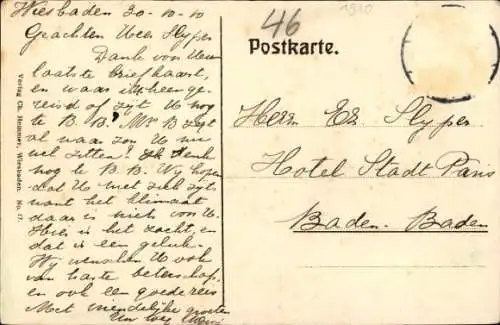 Wiesbaden 30-10-10
Geachten Heer Slyper
Dank van Uw
laatste briefkaart,
en waar is heen ge-
reisd of zijt U nog
te B. B. Mr B zegt
al waar zou U nu
wel zitten! Ik denk
nog te B. B. Wij hopen
dat U niet ziek zijt
want het klimaat
daar is niets van U.
Hier is het zacht, en
dat is een geluk.
Wij wenschen U ook
van harte beterschap
en ook een goede reis
Met vriendelijke groeten
46
1910
Postkarte.
Herrn Slyper
Hotel Stadt Paris
Baden-Baden
Verlag Ch. Hemmer, Wiesbaden. No. 17.